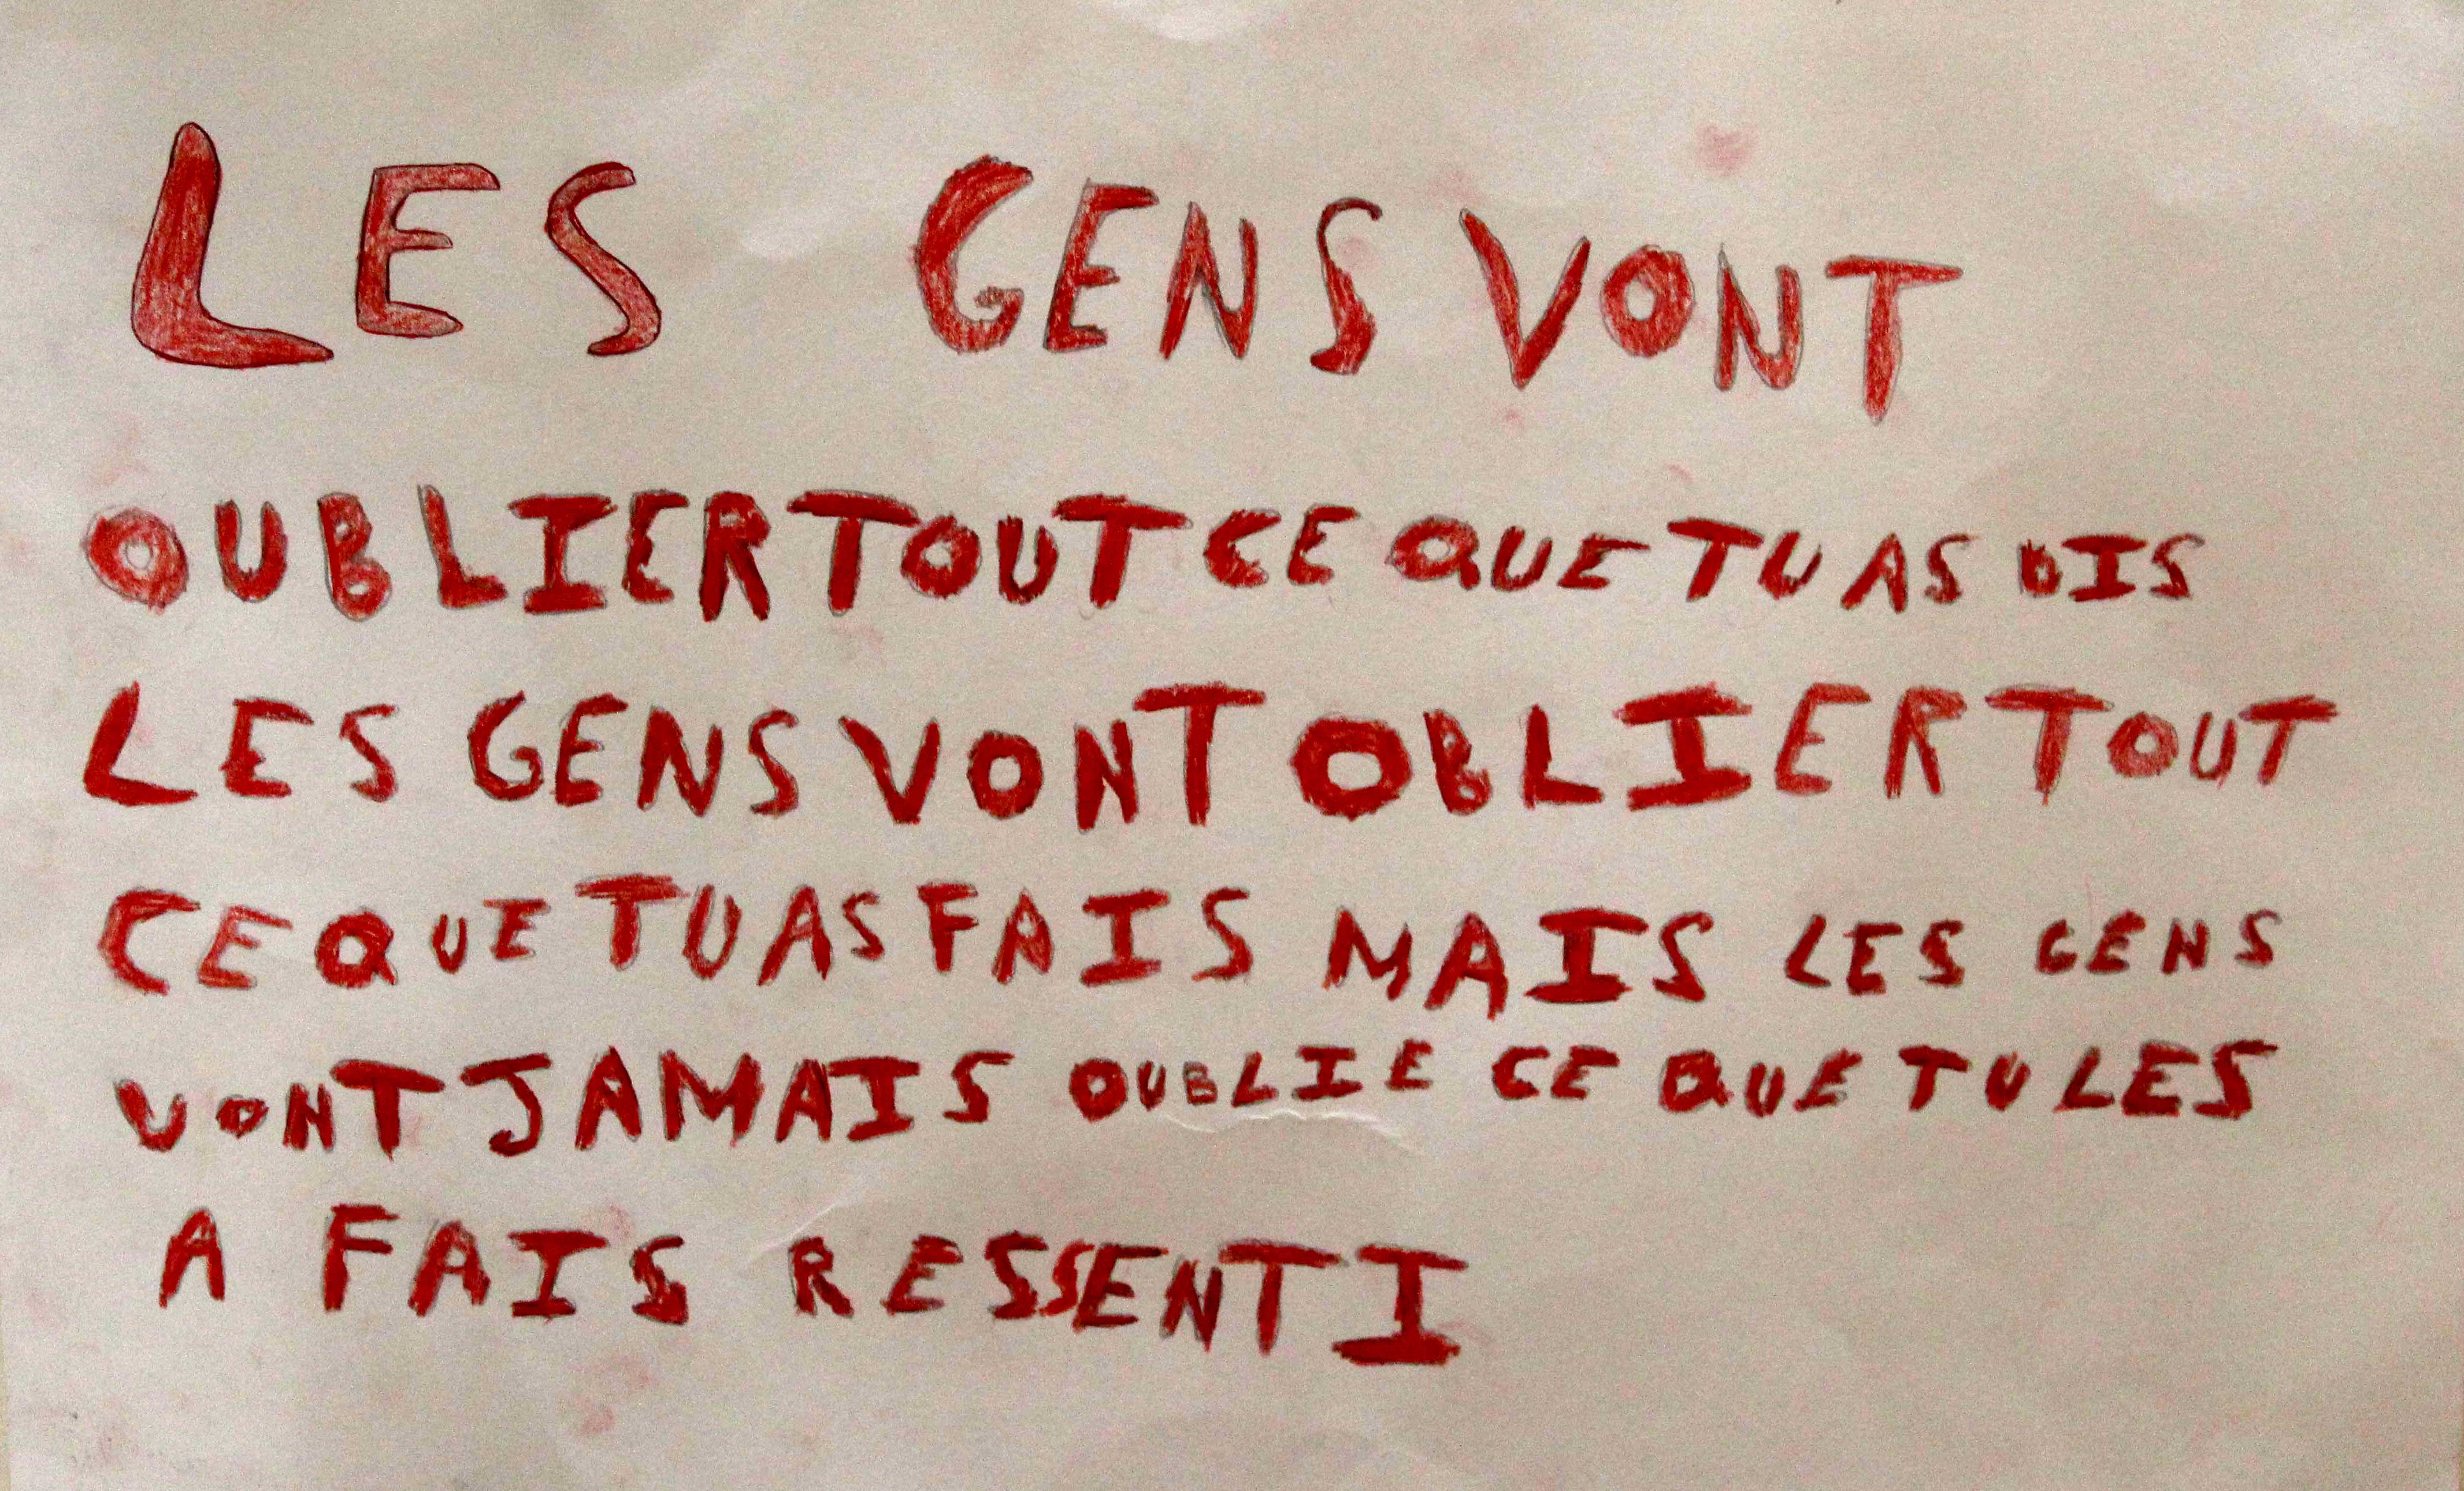 LES GENS VONT
OUBLIER TOUT CE QUE TU AS DIS
LES GENS VONT OBLIER TOUT
CE QUE TU AS FAIS MAIS LES GENS
VONT JAMAIS OUBLIE CE QUE TU LES
A FAIS RESSENTI